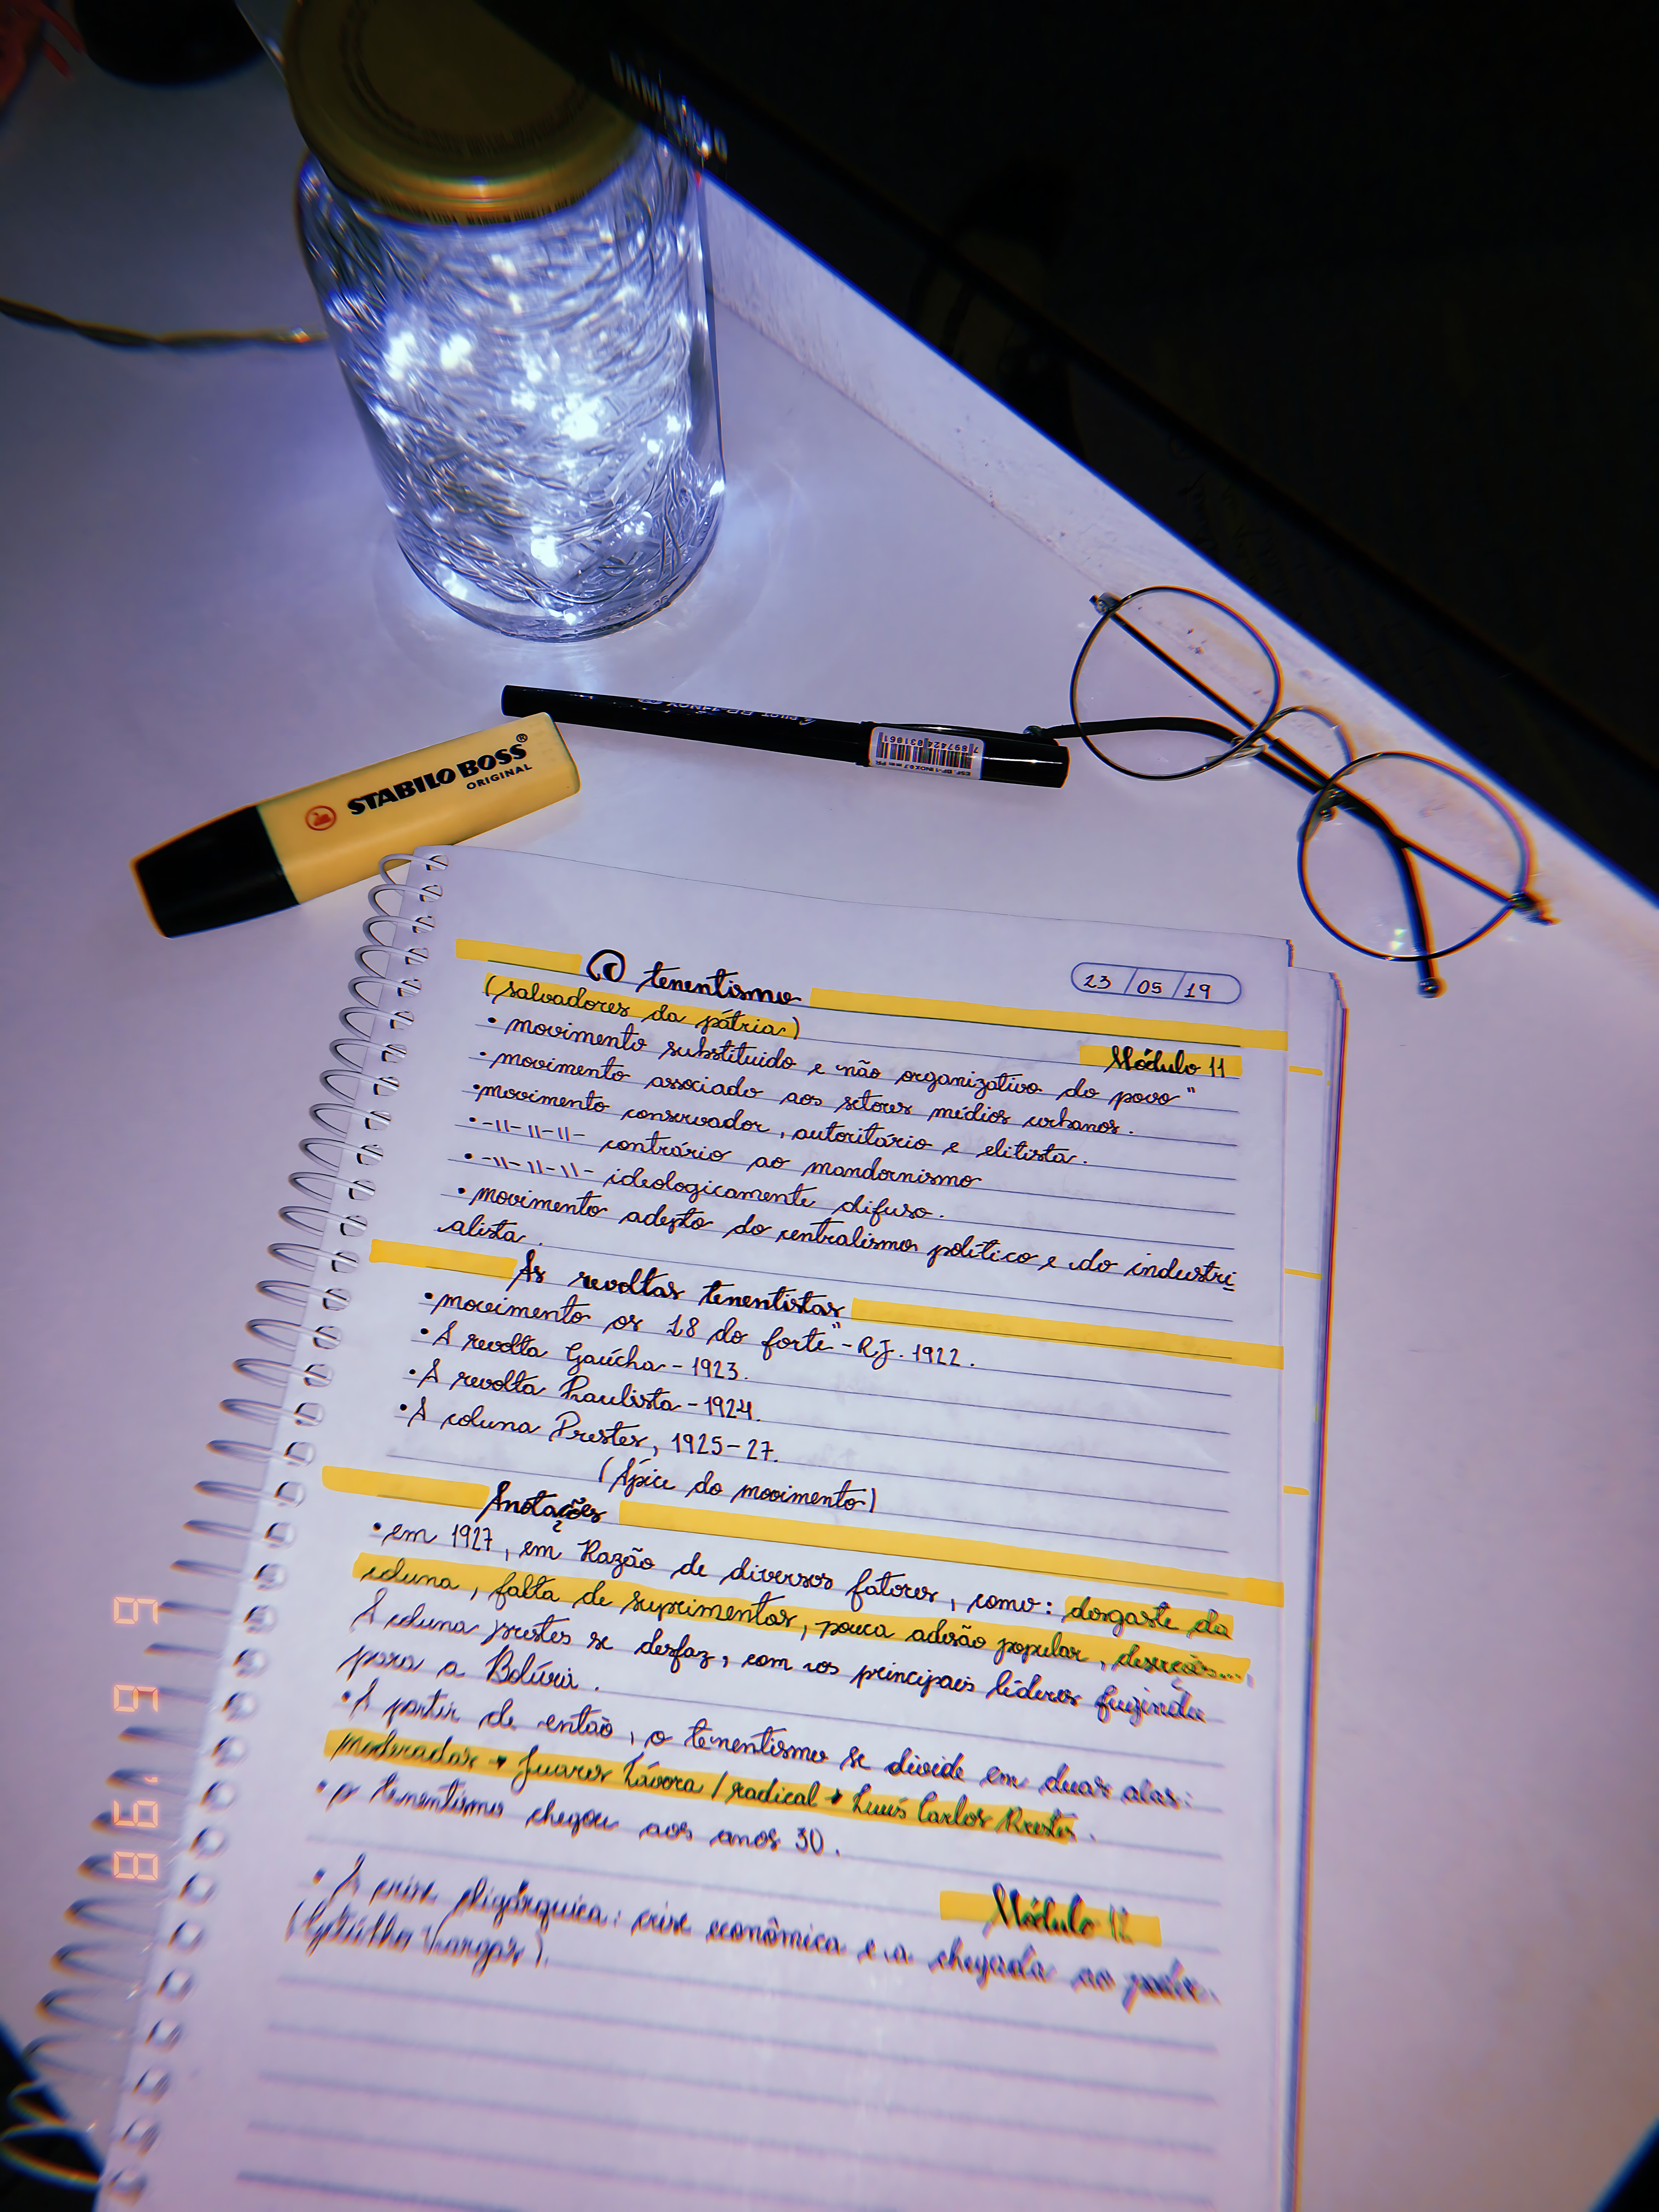 STABILO BOSS®
ORIGINAL
7 897424 031061
23/05/19
O tenentismo
(salvadores da pátria)
Módulo 11
• movimento substituido e não organizativo do povo"
• movimento associado aos setores médios urbanos.
• movimento conservador, autoritário e elitista.
• -11- 11- 11- contrário ao mandonismo
• -11- 11- 11- ideologicamente difuso.
• movimento adepto do centralismo político e do industri
alista.
As revoltas tenentistas
• movimento os 18 do forte" - RJ. 1922.
• A revolta Gaúcha - 1923.
• A revolta Paulista - 1924.
• A coluna Prestes, 1925-27.
(Ápice do movimento)
Anotações
• em 1927, em Razão de diversos fatores, como: desgaste da
coluna, falta de suprimentos, pouca adesão popular,
A coluna prestes se desfaz, com os principais líderes fugindo
para a Bolívia.
• A partir de então, o tenentismo se divide em duas alas:
moderadas → Juarez Távora / radical → Luís Carlos Prestes.
• o tenentismo chegou aos anos 30.
Módulo 12
• A crise oligárquica: crise econômica e a chegada ao poder.
Vargas).
6 6 '98